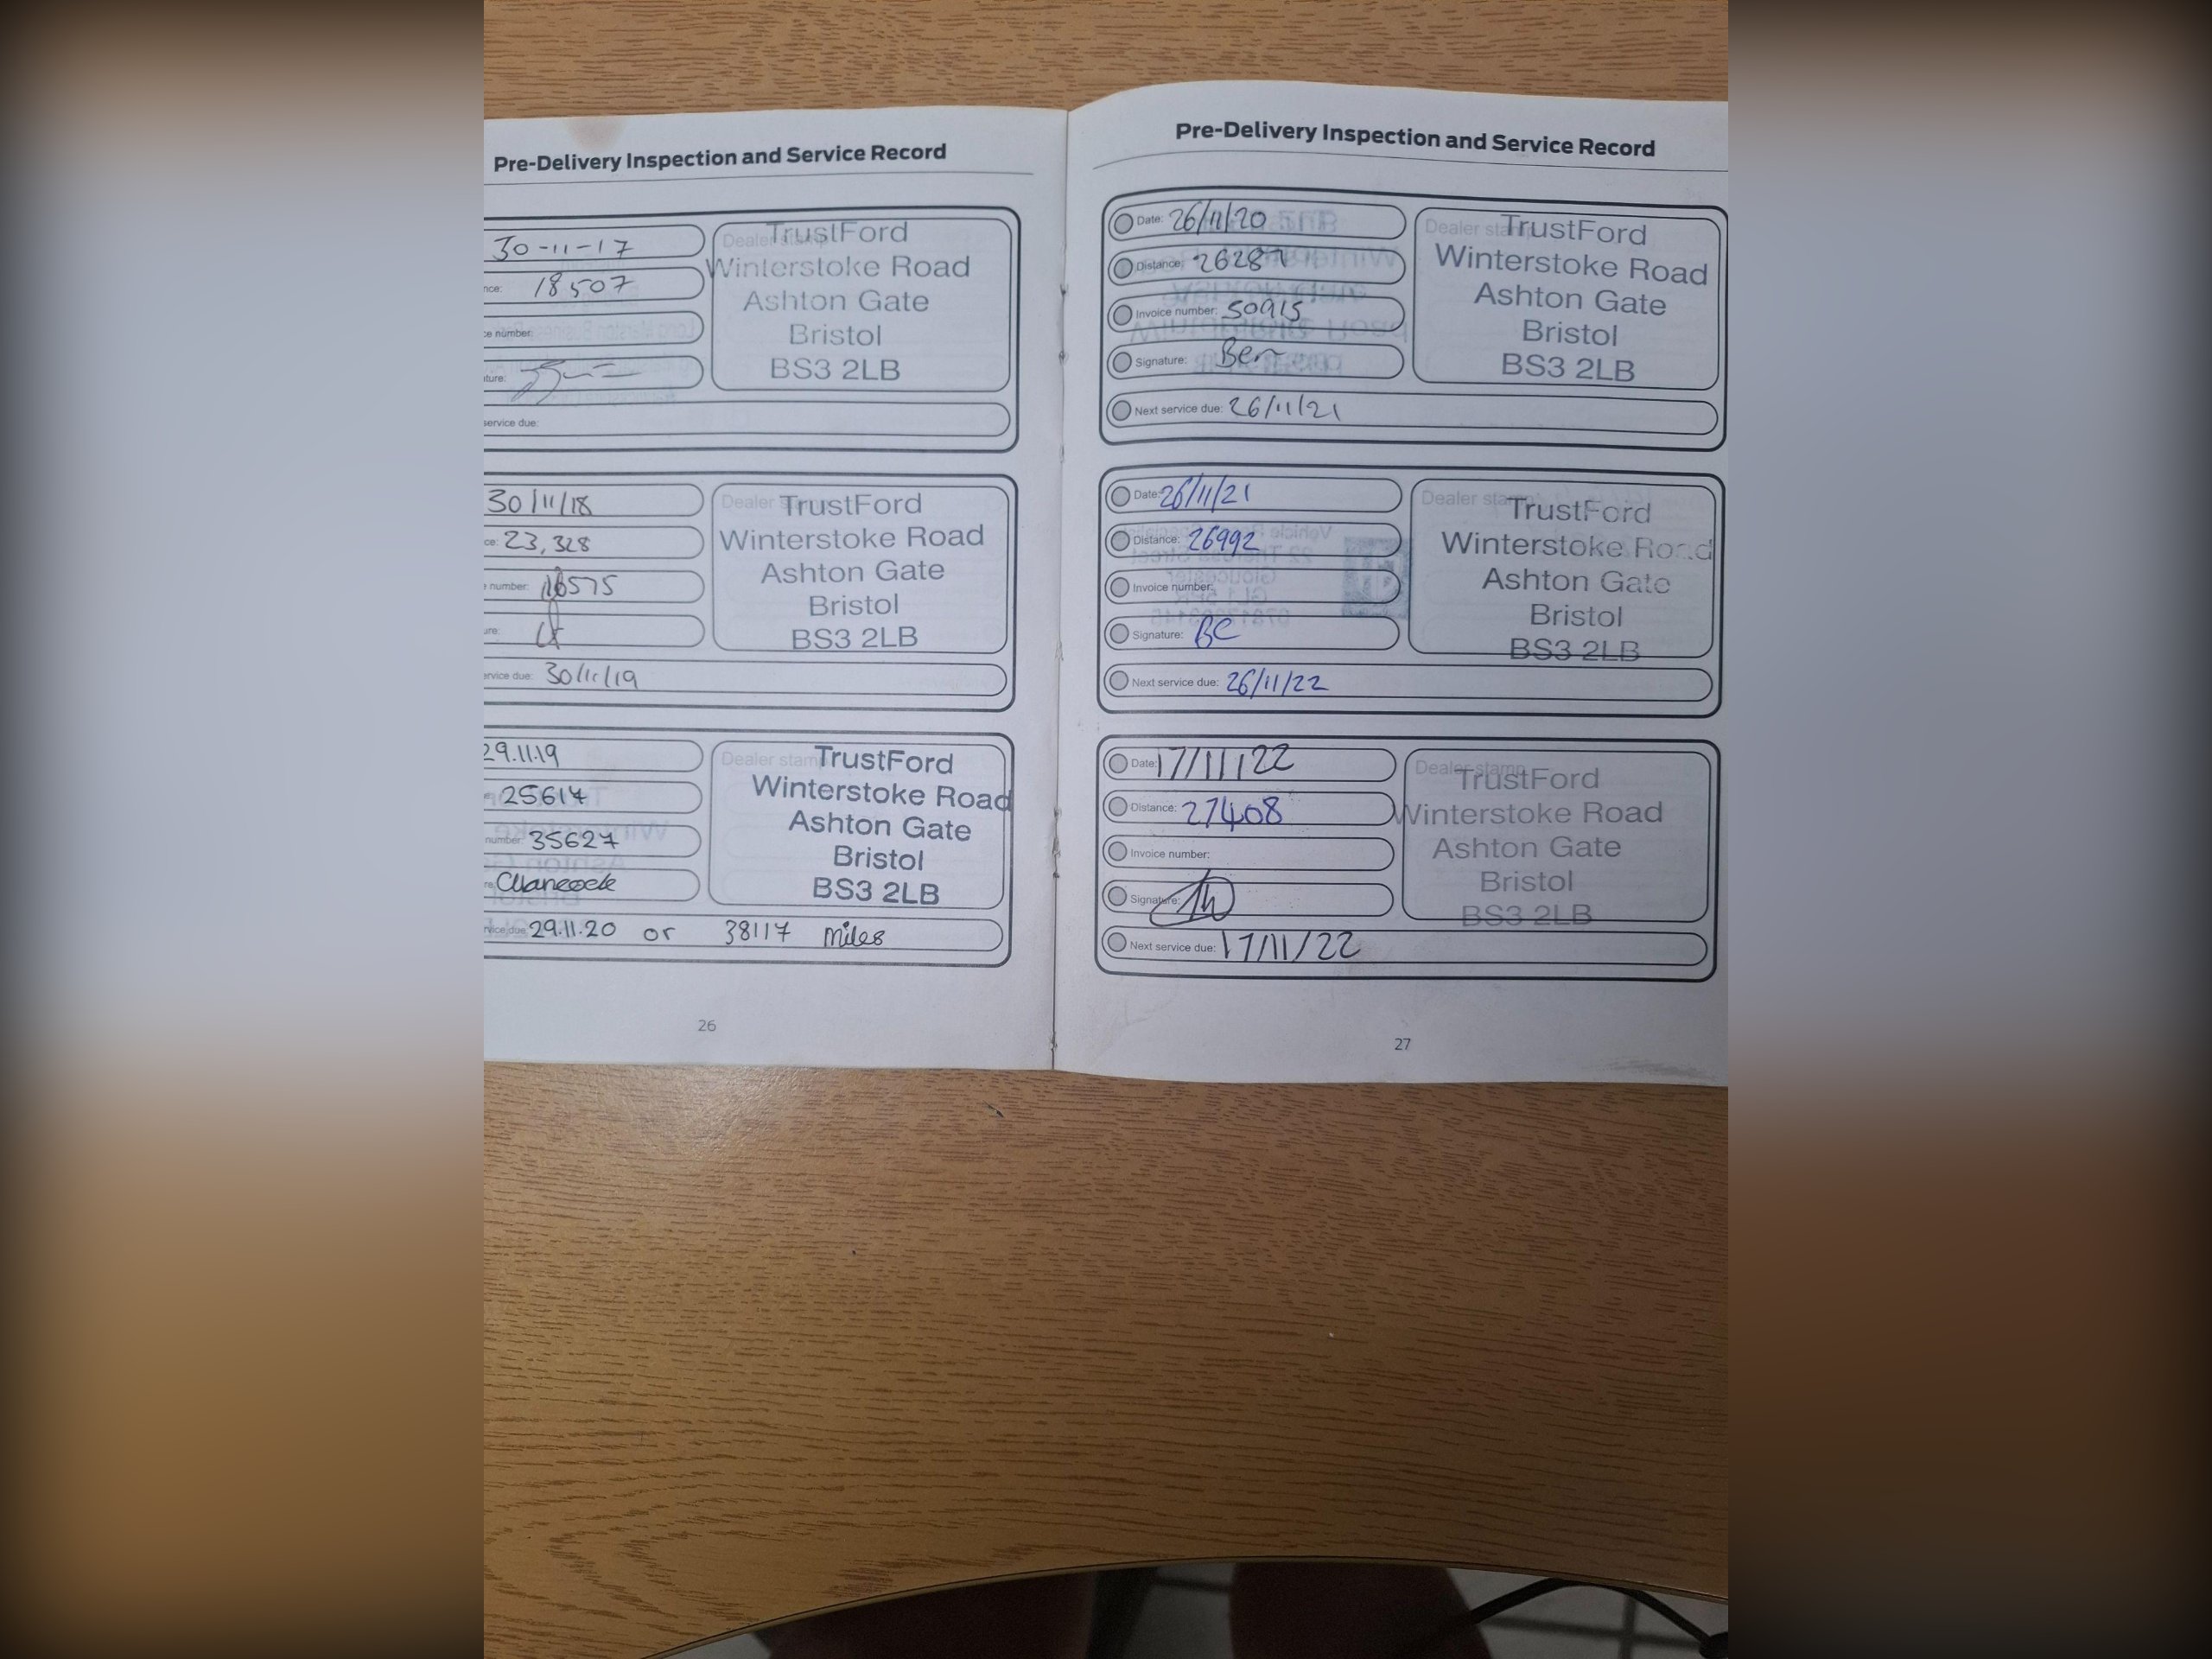 Pre-Delivery Inspection and Service Record
30-11-17
nce: 18507
ce number:
ture:
service due:
Dealer stamp
TrustFord
Winterstoke Road
Ashton Gate
Bristol
BS3 2LB
30/11/18
ce: 23,328
number: 16575
ure:
ervice due: 30/11/19
Dealer stamp
TrustFord
Winterstoke Road
Ashton Gate
Bristol
BS3 2LB
29.11.19
25614
number: 35627
re:
rvice due: 29.11.20 or 38117 miles
Dealer stamp
TrustFord
Winterstoke Road
Ashton Gate
Bristol
BS3 2LB
26
Pre-Delivery Inspection and Service Record
Date: 26/11/20
Distance: 26287
Invoice number: 50915
Signature: Ben
Next service due: 26/11/21
Dealer stamp
TrustFord
Winterstoke Road
Ashton Gate
Bristol
BS3 2LB
Date: 26/11/21
Distance: 26992
Invoice number:
Signature: BC
Next service due: 26/11/22
Dealer stamp
TrustFord
Winterstoke Road
Ashton Gate
Bristol
BS3 2LB
Date: 17/11/22
Distance: 27408
Invoice number:
Signature:
Next service due: 17/11/22
Dealer stamp
TrustFord
Winterstoke Road
Ashton Gate
Bristol
BS3 2LB
27